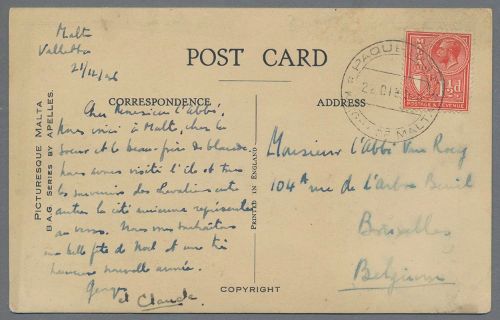 Malta
Valletta
21/12/26
POST CARD
CORRESPONDENCE
ADDRESS
PAQUEBOT
MALTA
POSTAGE & REVENUE
½d
Cher Monsieur l'abbé,
Nous voici à Malte, chez la
soeur et le beau-frère de Claude.
Nous avons visité l'île et tous
les souvenirs des Chevaliers et
autres la cité ancienne représentée
au verso. Nous vous souhaitons
une belle fête de Noël et une très
heureuse nouvelle année.
Georges
et Claude.
Monsieur l'Abbé Van Roey
104A rue de l'Arbre Benit
Bruxelles
Belgium
PICTURESQUE MALTA
B.A.G. SERIES BY APELLES.
PRINTED IN ENGLAND
COPYRIGHT